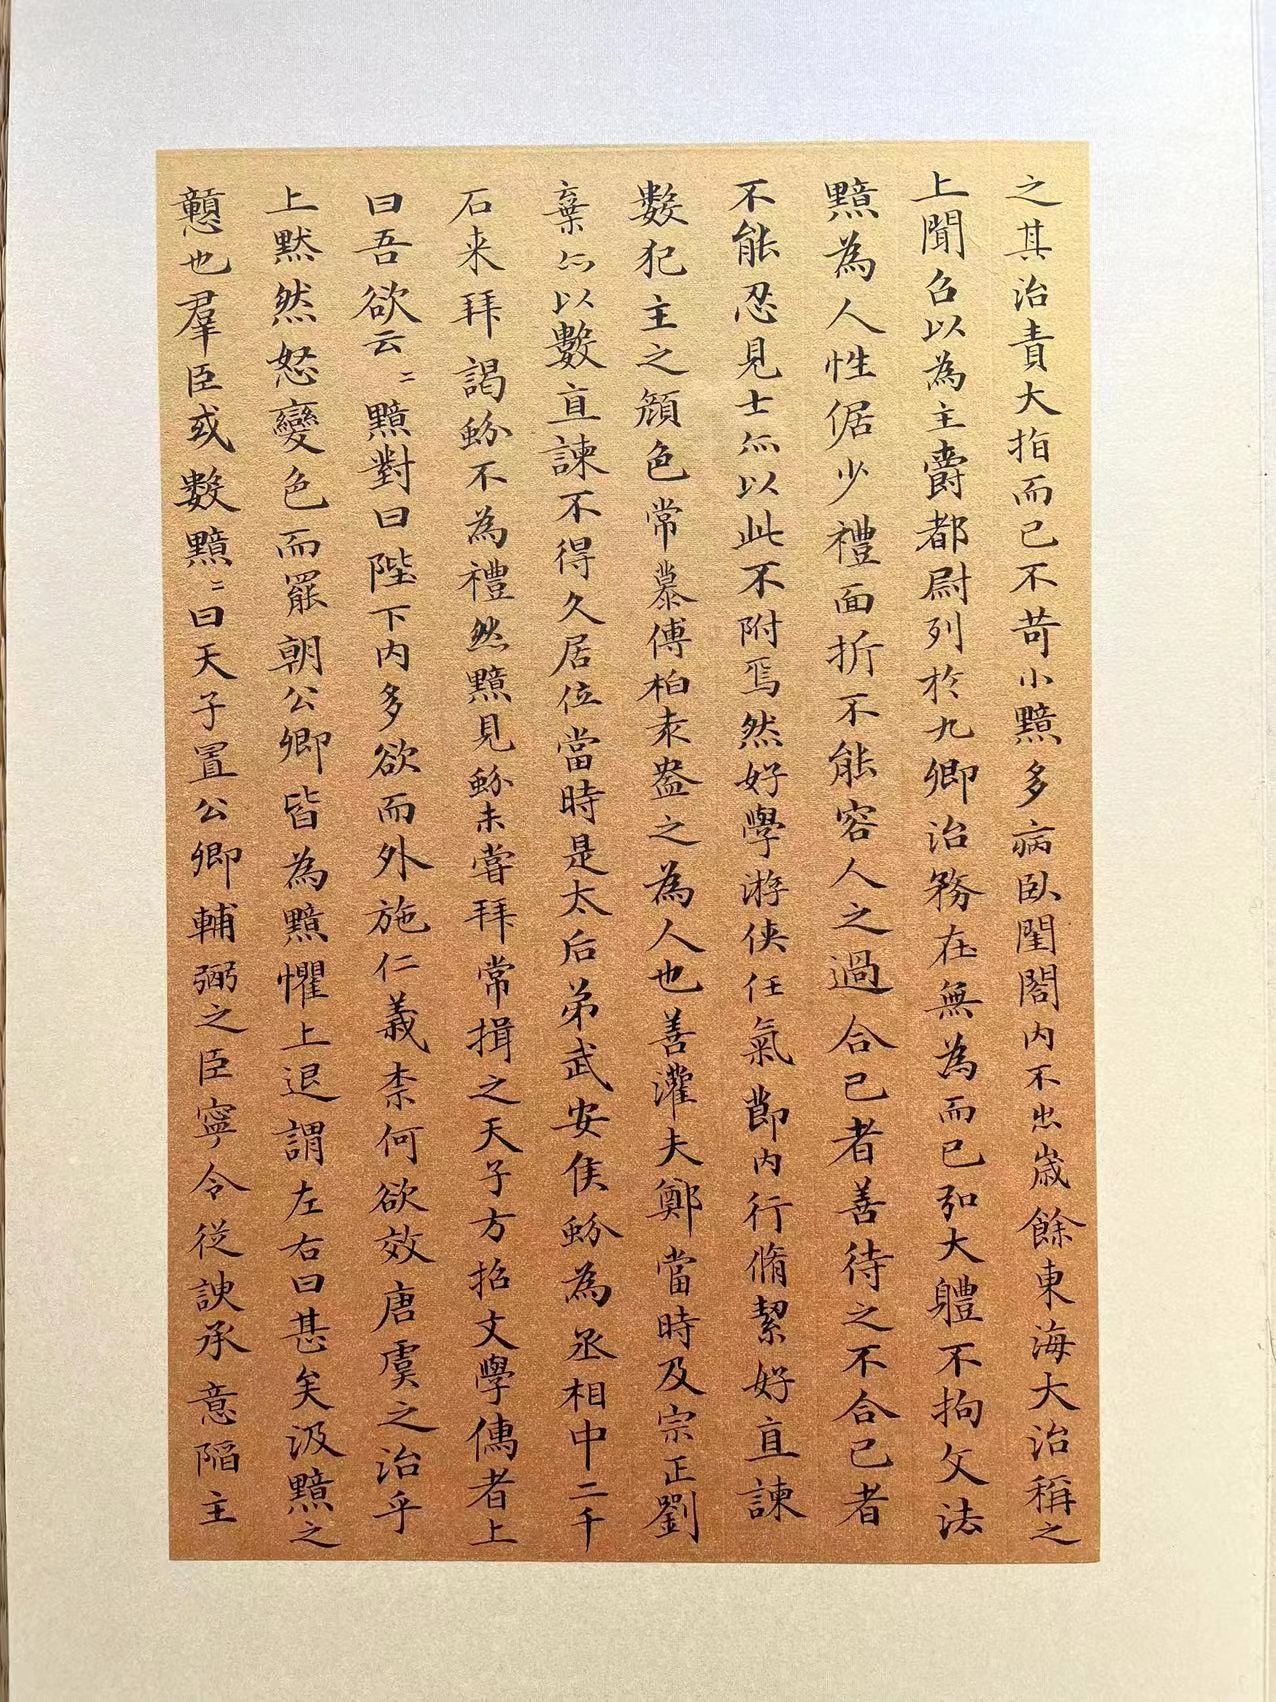 之其治責大指而已不苛小黯多病臥閨閤内不出歲餘東海大治稱之
上聞召以為主爵都尉列於九卿治務在無為而已弘大體不拘文法
黯為人性倨少禮面折不能容人之過合己者善待之不合己者
不能忍見士亦以此不附焉然好學游俠任氣節内行脩絜好直諫
數犯主之顔色常慕傅柏袁盎之為人也善灌夫鄭當時及宗正劉
棄亦以數直諫不得久居位當時是太后弟武安侯蚡為丞相中二千
石来拜謁蚡不為禮然黯見蚡未嘗拜常揖之天子方招文學儒者上
曰吾欲云〻黯對曰陛下内多欲而外施仁義柰何欲效唐虞之治乎
上黙然怒變色而罷朝公卿皆為黯懼上退謂左右曰甚矣汲黯之
戇也羣臣或數黯〻曰天子置公卿輔弼之臣寧令從諛承意陷主